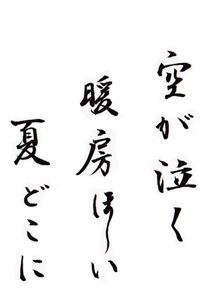 空が泣く
暖房ほしい
夏どこに